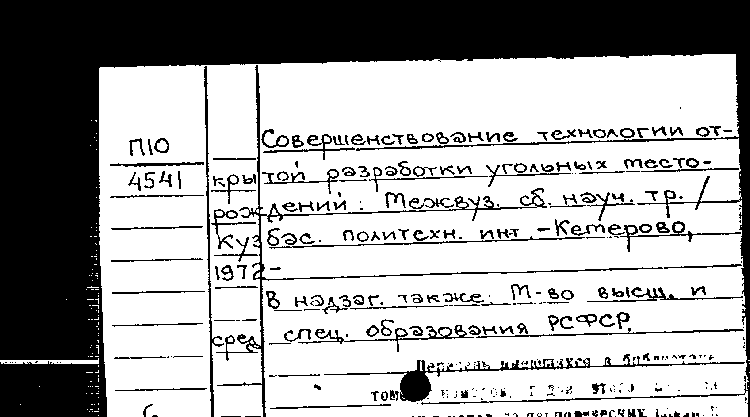 Совершенствование технологии от-
П10
4541 крытой разработки угольных место-
рождений: Межвуз. сб. науч. тр. /
Кузбас. политехн. инт. -Кемерово,
1972-
В надзаг. также: М-во высш. и
сред. спец. образования РСФСР.
Перечень имеющихся в библиотеке